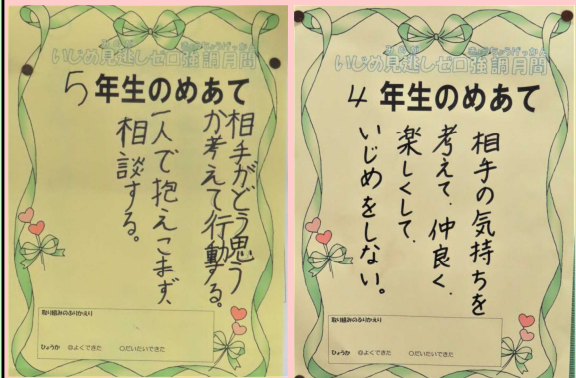 いじめ見逃しゼロ強調月間
5年生のめあて
相手がどう思う
か考えて行動する。
一人で抱えこまず、
相談する。
取り組みのふりかえり
ひょうか ◎よくできた ○だいたいできた
いじめ見逃しゼロ強調月間
4年生のめあて
相手の気持ちを
考えて、仲良く、
楽しくして、
いじめをしない。
取り組みのふりかえり
ひょうか ◎よくできた ○だいたいできた